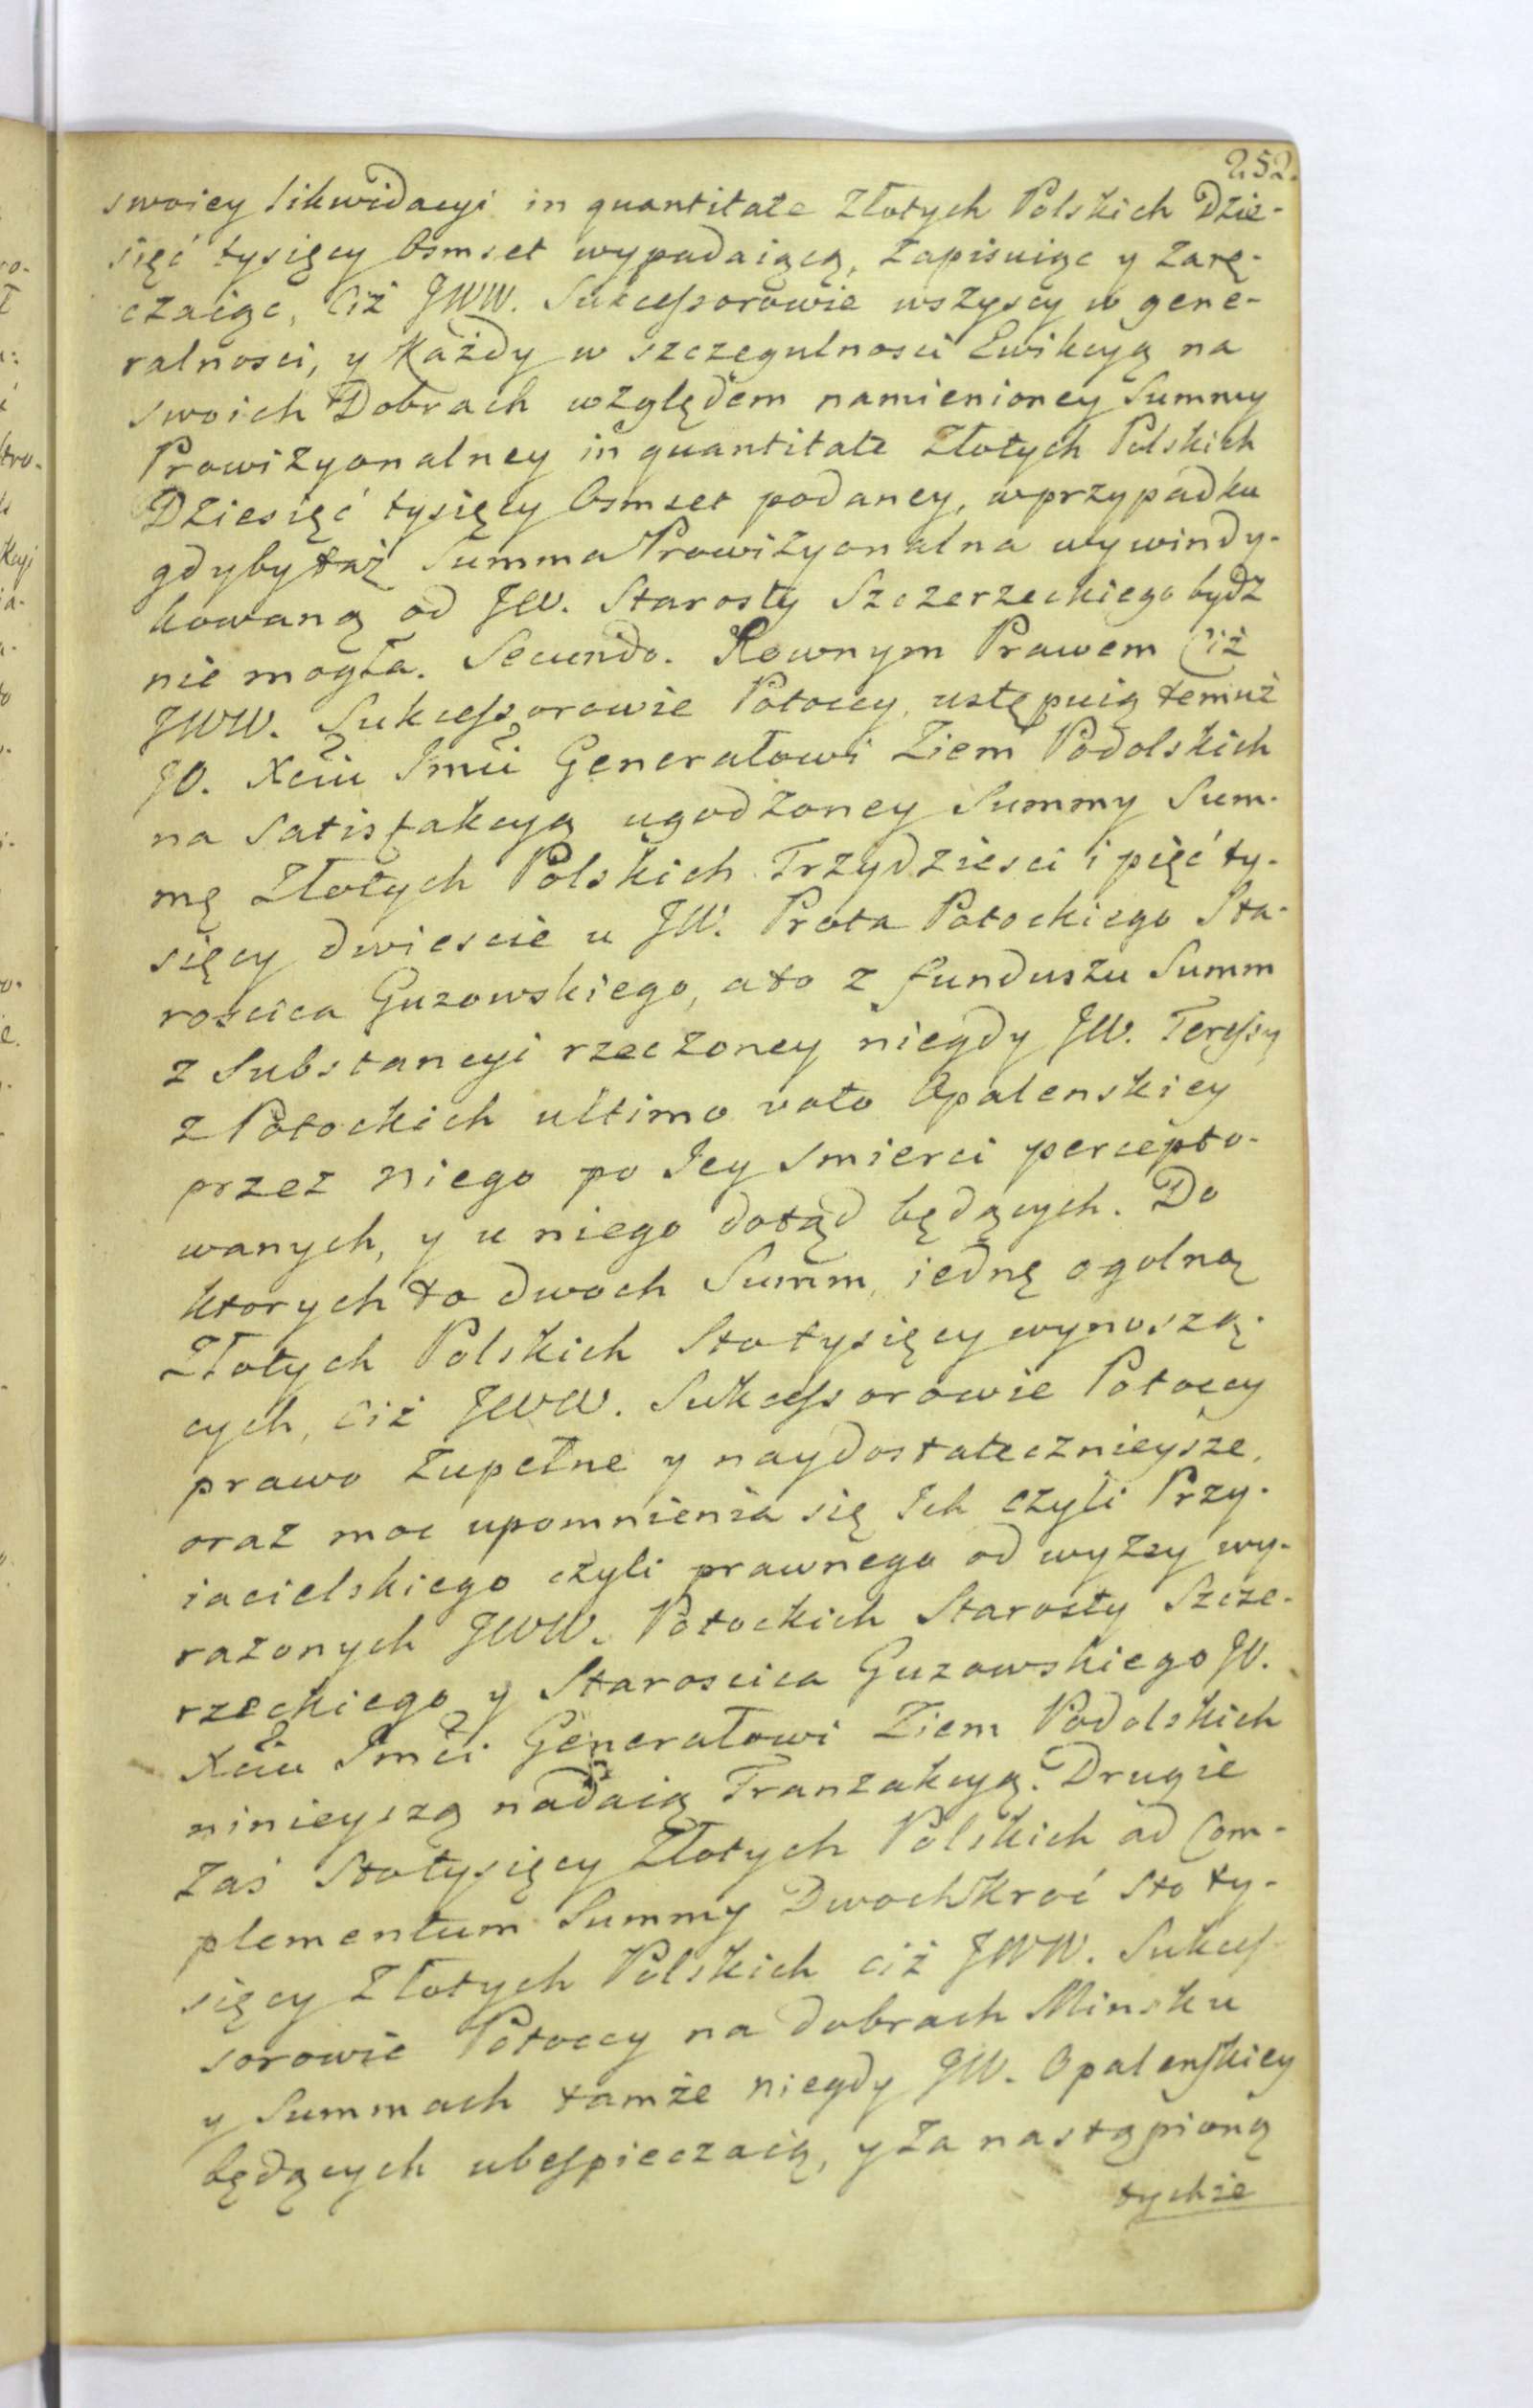 252.
swoiey likwidacyi in quantitate Złotych Polskich Dzie-
sięć tysięcy Osmset wypadaiącą, zapisuiąc y zarę-
czaiąc, Ciż JWW. Sukcessorowie wszyscy w gene-
ralnosci, y Każdy w szczegulnosci Ewikcyą na
swoich Dobrach względem namienioney Summy
Prowizyonalney in quantitate Złotych Polskich
Dziesięć tysięcy Osmset podaney, w przypadku
gdyby taż Summa Prowizyonalna wywindy-
kowaną od JW. Starosty Szczerzeckiego bydz
nie mogła. Secundo. Rownym Prawem Ciż
JWW. Sukcessorowie Potoccy, ustępuią temuż
JO. Xciu Jmci Generałowi Ziem Podolskich
na satisfakcyą ugodzoney Summy Sum-
mę Złotych Polskich Trzydziesci i pięć ty-
sięcy dwiescie u JW. Prota Potockiego Sta-
roscica Guzowskiego, a to z funduszu Summ
z Substancyi rzeczoney niegdy JW. Teressy
z Potockich ultimo voto Opalenskiey
przez niego po Jey smierci percepto-
wanych, y u niego dotąd będących. Do
ktorych to dwoch Summ, iednę ogolną
Złotych Polskich Sto tysięcy wynoszą-
cych, Ciż JWW. Sukcessorowie Potoccy
prawo zupełne y naydostatecznieysze,
oraz moc upomnienia się Ich czyli Przy-
iacielskiego czyli prawnego od wyżey wy-
rażonych JWW. Potockich Starosty Szcze-
rzeckiego y Staroscica Guzowskiego JO.
Xciu Jmci Generałowi Ziem Podolskich
ninieyszą nadaią Tranzakcyą. Drugie
zaś Sto tysięcy Złotych Polskich ad Com-
plementum Summy Dwochkroć sto ty-
sięcy Złotych Polskich ciż JWW. Sukces-
sorowie Potoccy na dobrach Minsku
y Summach tamże niegdy JW. Opalenskiey
będących ubespieczaią, y za nastąpioną
tychże